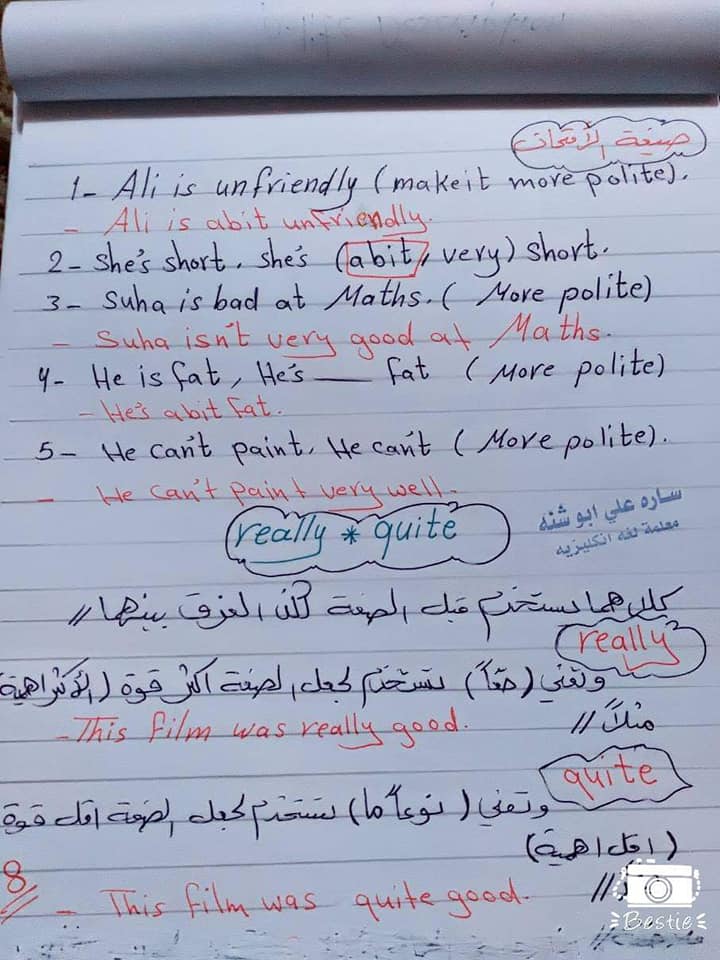 صيغة الأمتحان
1- Ali is unfriendly (make it more polite).
- Ali is abit unfriendly.
2- She's short. she's (abit, very) short.
3- Suha is bad at Maths. (More polite)
- Suha isn't very good at Maths.
4- He is fat, He's ___ fat (More polite)
- He's abit fat.
5- He can't paint. He can't (More polite).
- He can't paint very well.
ساره علي ابو شنه
معلمة لغه انكليزيه
really * quite
كلاهما يستخدم قبل الصفة لكن الفرق بينهما //
really
وتعني (حقاً) تستخدم لجعل الصفة اكثر قوة (الأكثر اهمية
مثلاً //
- This film was really good.
quite
وتعني (نوعاً ما) تستخدم لجعل الصفة اقل قوة
(اقل اهمية)
//
8
- This film was quite good.
Bestie